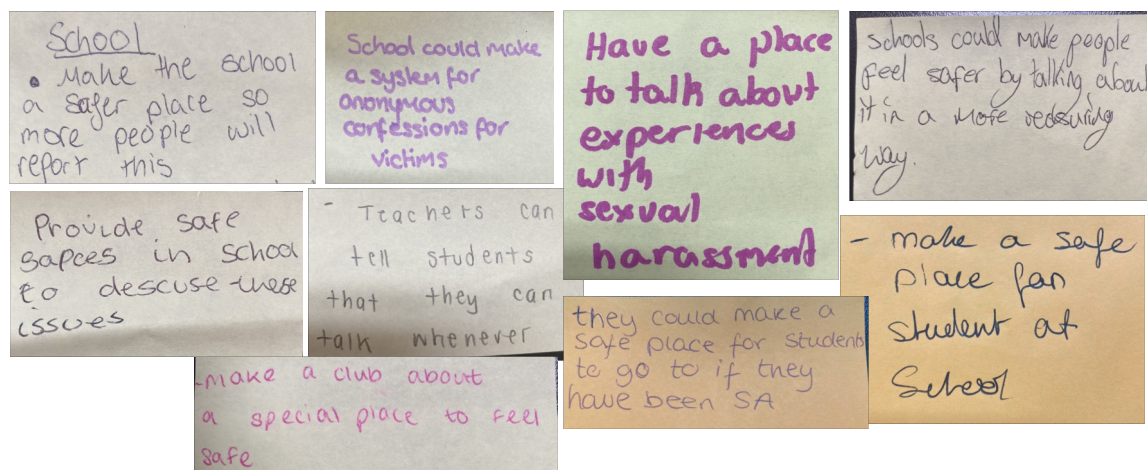 School
• Make the school
a safer place so
more people will
report this
School could make
a system for
anonymous
confessions for
victims
Have a place
to talk about
experiences
with
sexual
harassment
schools could make people
feel safer by talking about
it in a more
way.
Provide safe
sapces in school
to descuse these
issues
- Teachers can
tell students
that they can
talk whenever
they could make a
safe place for students
to go to if they
have been SA
- make a safe
place for
student at
School
-make a club about
a special place to feel
safe